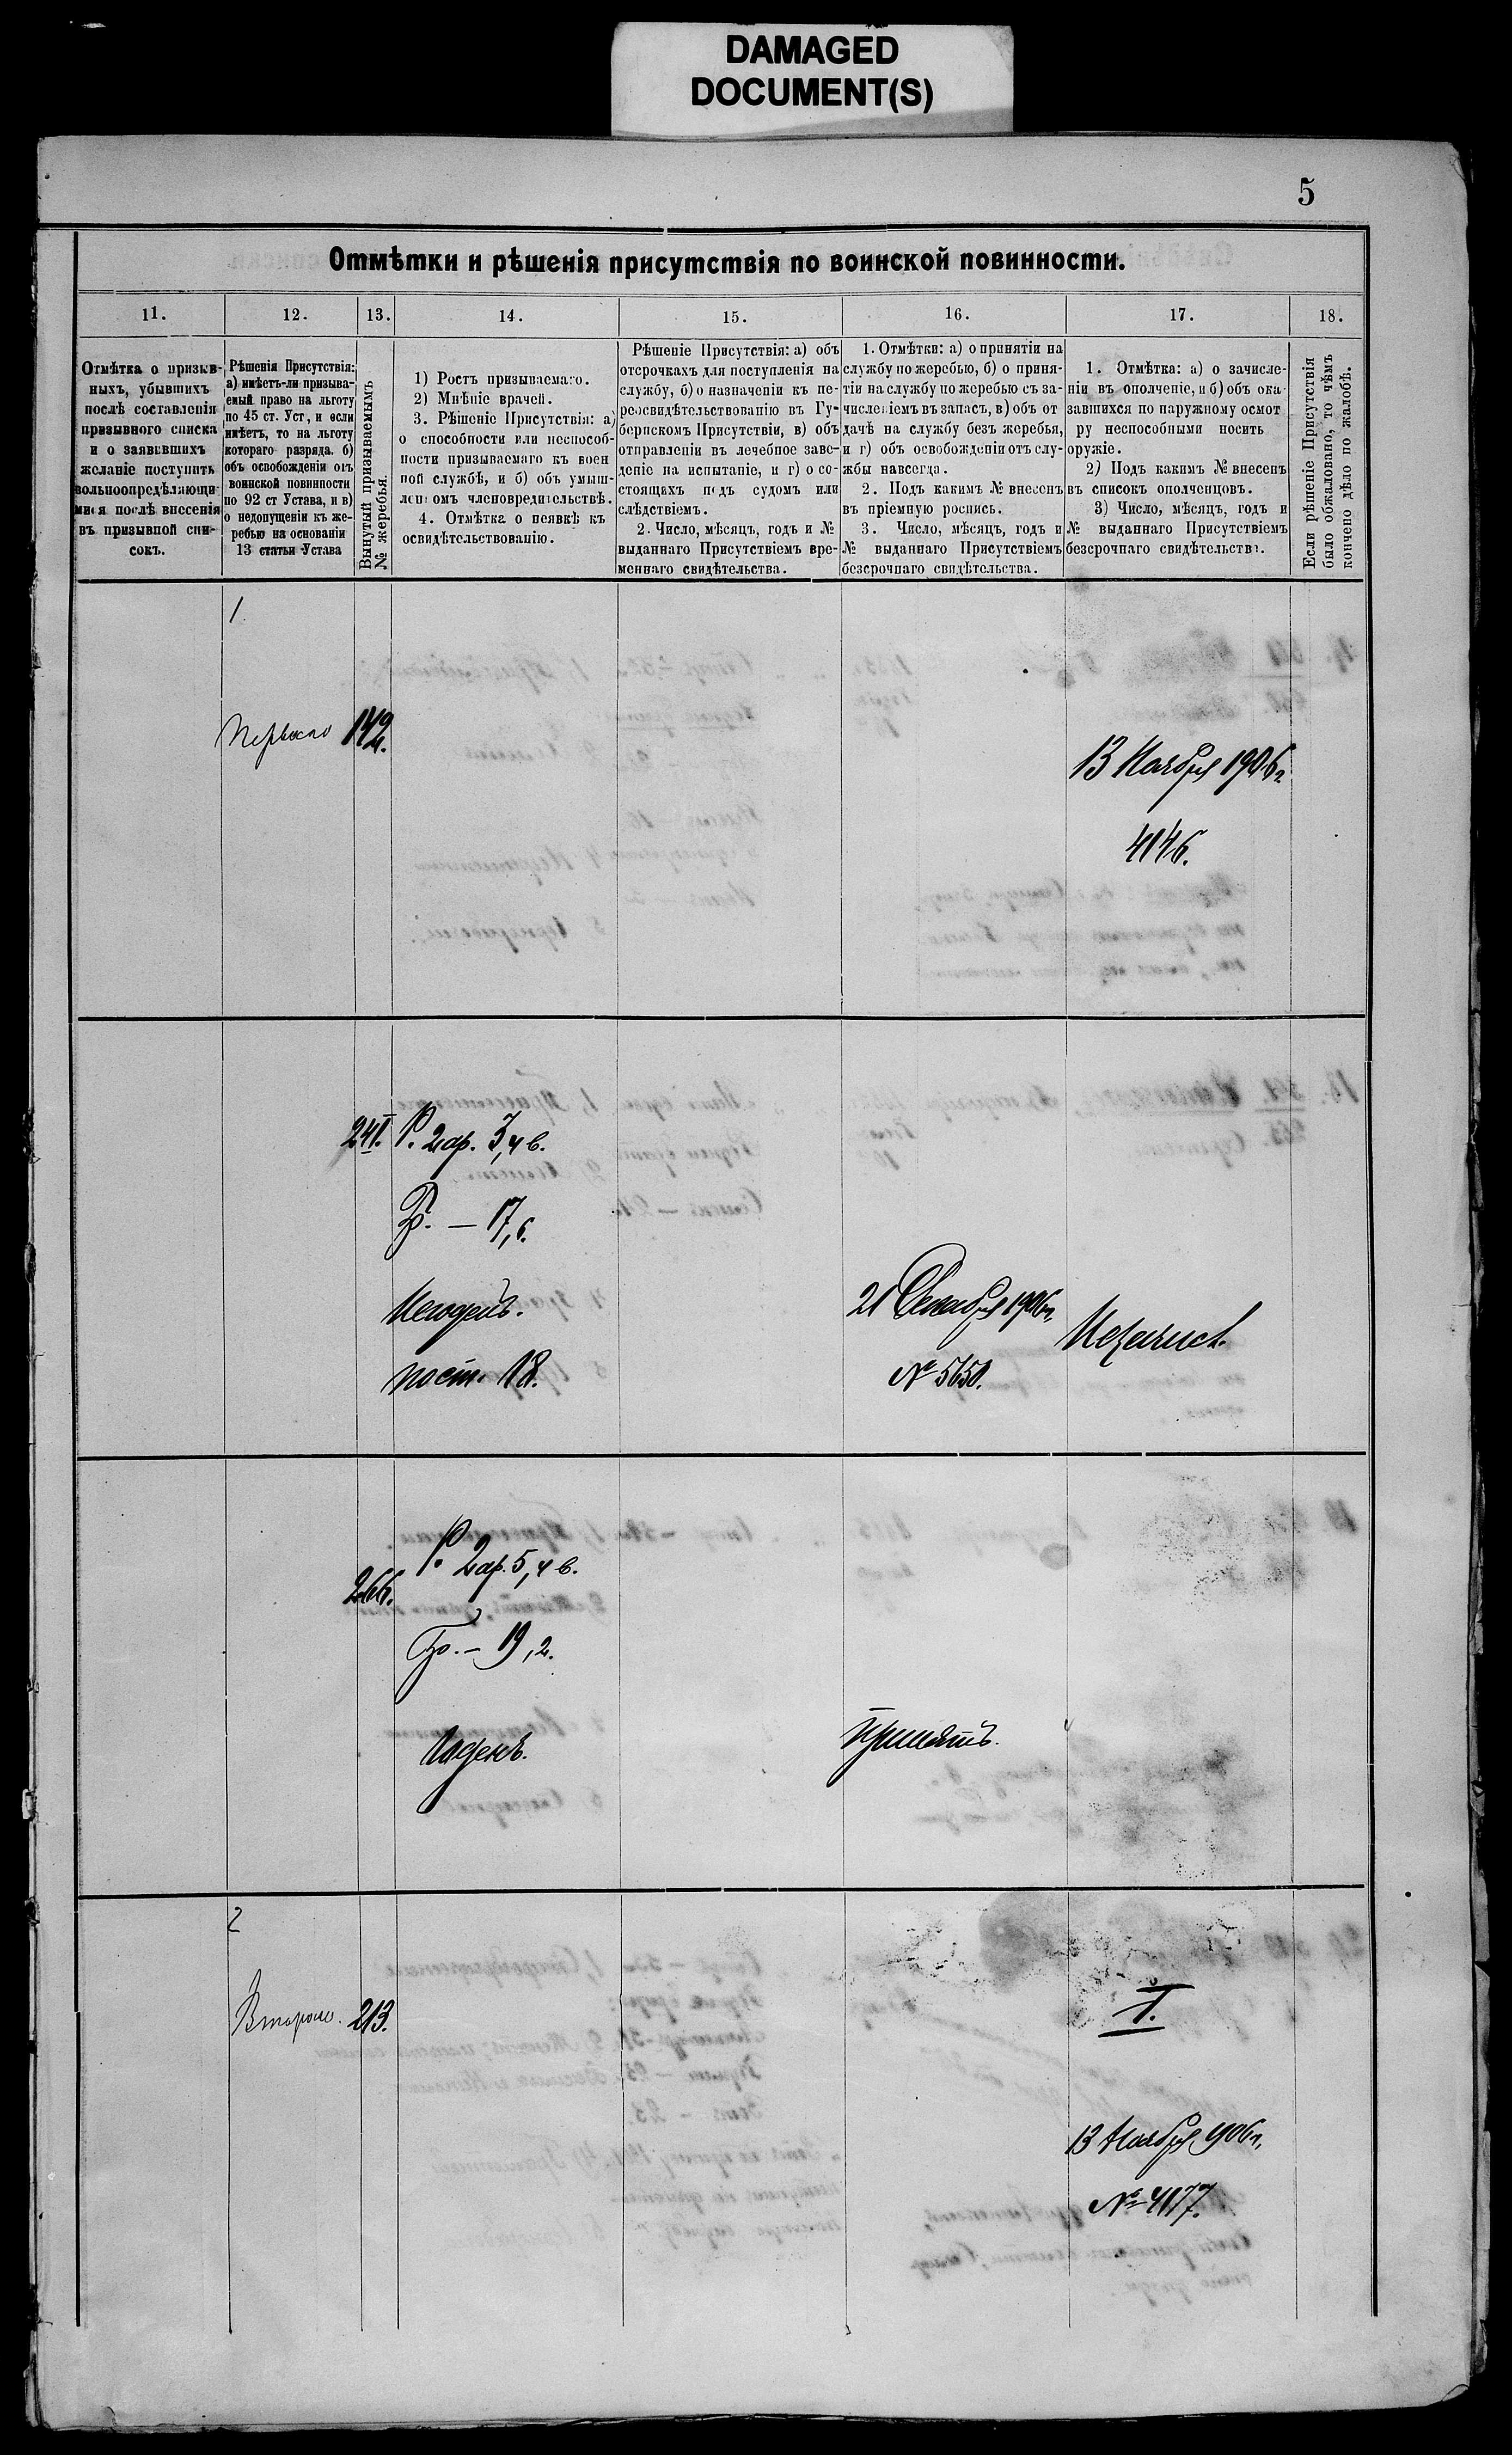 DAMAGED
DOCUMENT(S)
5
Отмѣтки и рѣшенія присутствія по воинской повинности.
11.
12.
13.
14.
15.
16.
17.
18.
Отмѣтка о призыв-
ныхъ, убывшихъ
послѣ составленія
призывного списка
и о заявившихъ
желаніе поступить
вольноопредѣляющи-
мися послѣ внесенія
въ призывной спи-
сокъ.
Рѣшенія Присутствія:
а) имѣетъ-ли призыва-
емый право на льготу
по 45 ст. Уст, и если
имѣетъ, то на льготу
котораго разряда. б)
объ освобожденіи отъ
воинской повинности
по 92 ст Устава, и в)
о недопущеніи къ же-
ребью на основаніи
13 статьи Устава
Вынутый призываемымъ
№ жеребья.
1) Ростъ призываемаго.
2) Мнѣніе врачей.
3. Рѣшеніе Присутствія: а)
о способности или неспособ-
ности призываемаго къ воен
ной службѣ, и б) объ умыш-
ленномъ членовредительствѣ.
4. Отмѣтка о неявкѣ къ
освидѣтельствованію.
Рѣшеніе Присутствія: а) объ
отсрочкахъ для поступленія на
службу, б) о назначеніи къ пе-
реосвидѣтельствованію въ Гу-
бернскомъ Присутствіи, в) объ
отправленіи въ лечебное заве-
деніе на испытаніе, и г) о со-
стоящихъ подъ судомъ или
слѣдствіемъ.
2. Число, мѣсяцъ, годъ и №
выданнаго Присутствіемъ вре-
меннаго свидѣтельства.
1. Отмѣтки: а) о принятіи на
службу по жеребью, б) о приня-
тіи на службу по жеребью съ за-
численіемъ въ запасъ, в) объ от
дачѣ на службу безъ жеребья,
и г) объ освобожденіи отъ слу-
жбы навсегда.
2. Подъ какимъ № внесенъ
въ пріемную роспись.
3. Число, мѣсяцъ, годъ и
№ выданнаго Присутствіемъ
безсрочнаго свидѣтельства.
1. Отмѣтка: а) о зачисле-
ніи въ ополченіе, и б) объ ока-
завшихся по наружному осмот
ру неспособными носить
оружіе.
2) Подъ какимъ № внесенъ
въ списокъ ополченцовъ.
3) Число, мѣсяцъ, годъ и
№ выданнаго Присутствіемъ
безсрочнаго свидѣтельства.
Если рѣшеніе Присутствія
было обжаловано, то чѣмъ
кончено дѣло по жалобѣ.
1
Перваго
13 Ноября 1906 г.
4146.
241. Р. 2 ар. 3, 4 в.
Гр. — 17,
Негоденъ.
21 Декабря 1906 г.
№ 5650.
266.
Р. 2 ар. 5, 4 в.
Гр. — 19, 2.
Годенъ.
Принятъ.
2
Второго. 213.
I.
13 Ноября 906 г.
№ 4177.